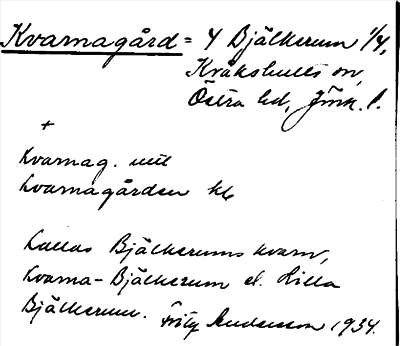 Kvarnagård = 4 Bjälkerum 1/4,
Kråkshults sn,
Östra hd, Jönk. l.
+
kvarnag. mtl
kvarnagården kb
kallas Bjälkerums kvarn,
kvarna-Bjälkerum el. Lilla
Bjälkerum. Fritz Andersson 1934.